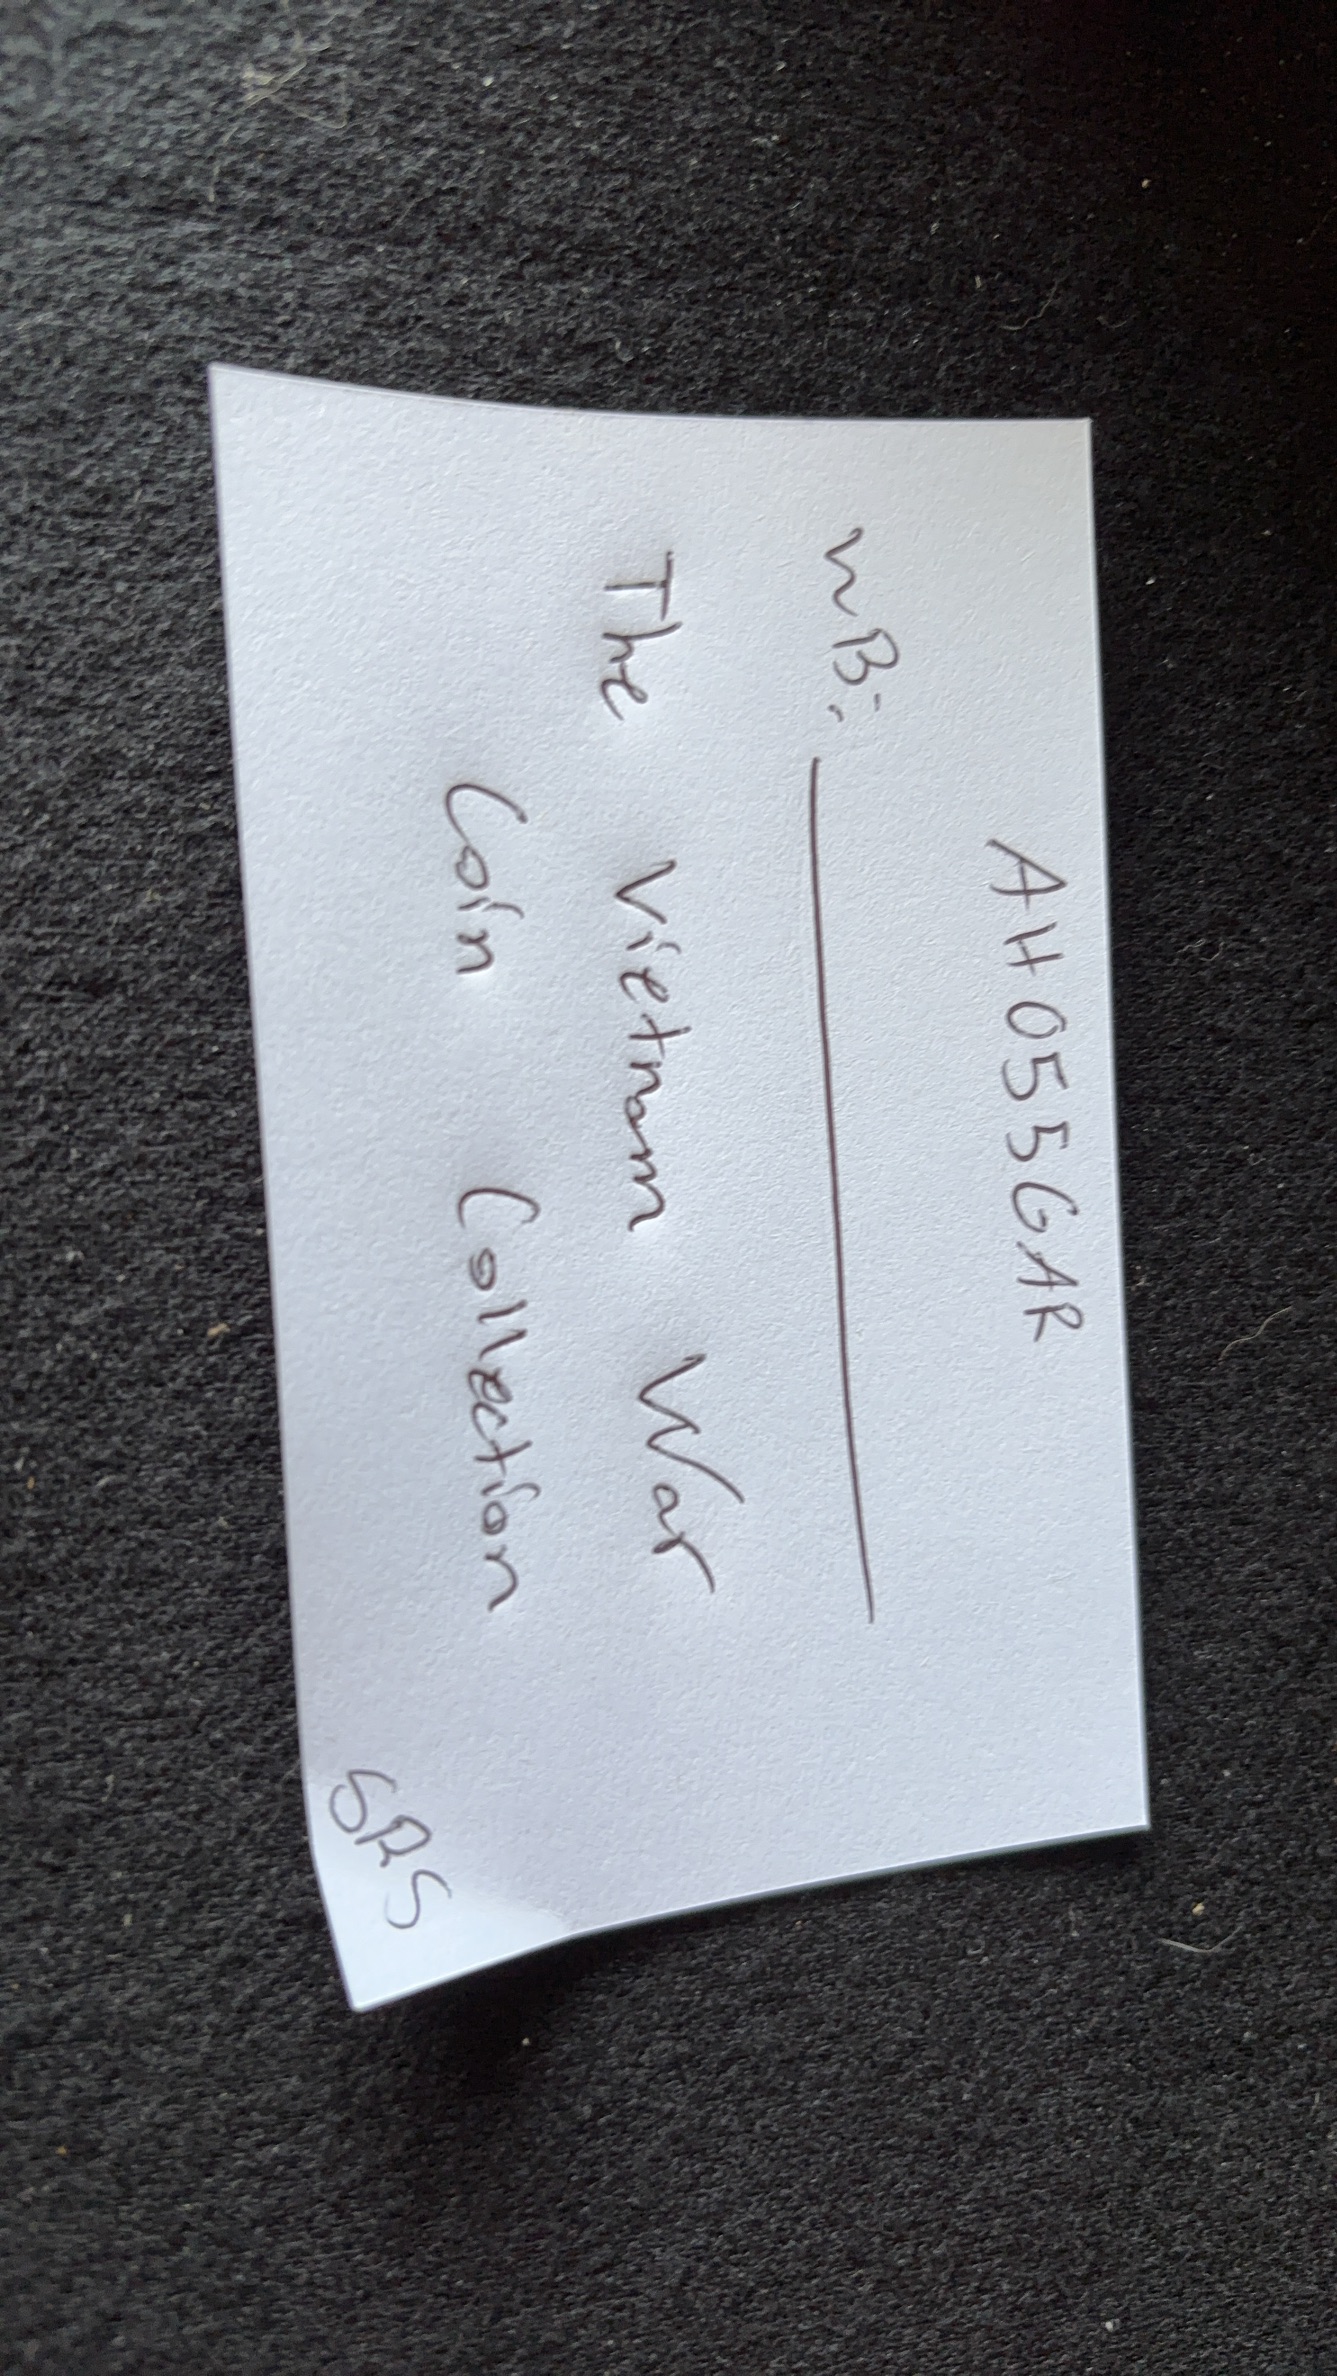 AH055GAR
nB: ________
The Vietnam War
Coin Collection
SRS